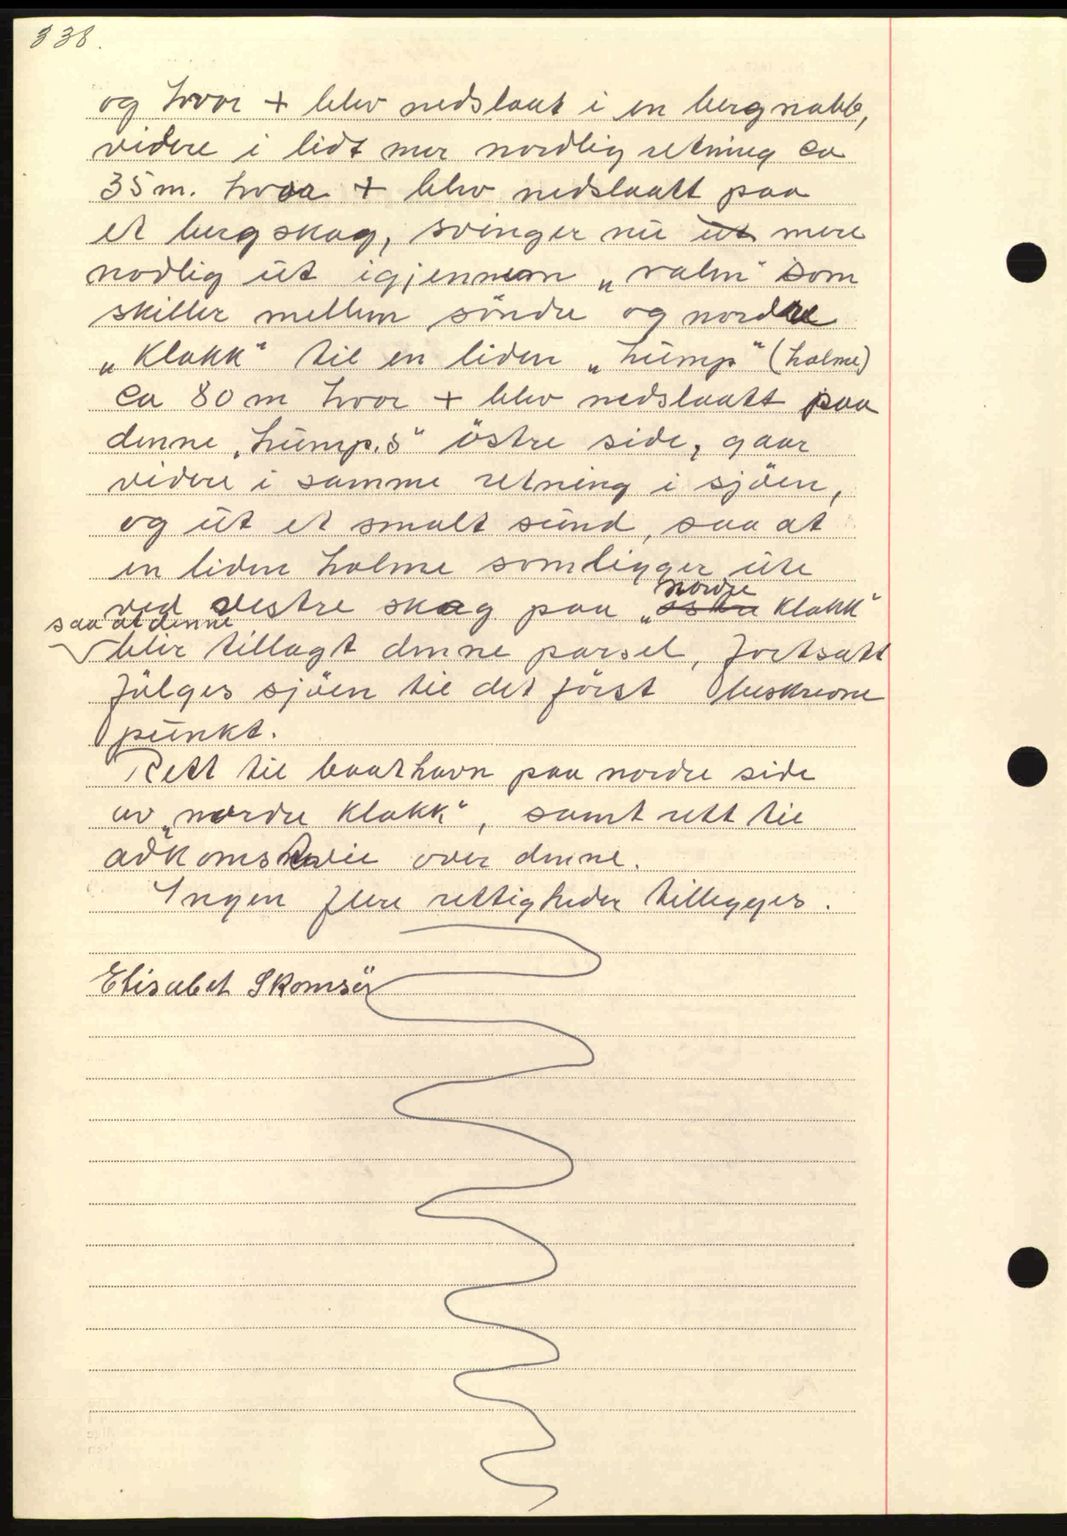 338.
og hvor + blev nedslaat i en bergnabb,
videre i lidt mer nordlig retning ca
35 m. hvor + blev nedslaatt paa
et bergskag, svinger nu ut mere
nodlig ut igjennem „valen" som
skiller mellem söndre og nordre
„Klakk" til en liden „hump" (holme)
ca 80 m hvor + blev nedslaatt paa
denne „hump.s" östre side, gaar
videre i samme retning i sjöen,
og ut et smalt sund, saa at
en liden holme somligger ute
nordre
ved vestre skag paa „östre Klakk"
saa at denne
blir tillagt denne parsel, fortsatt
fölges sjöen til det först beskrevne
punkt.
Rett til baathavn paa nordre side
av „nordre Klakk", samt rett til
adkomstveie over denne.
Ingen flere rettigheder tillegges.
Elisabet Skomsöy